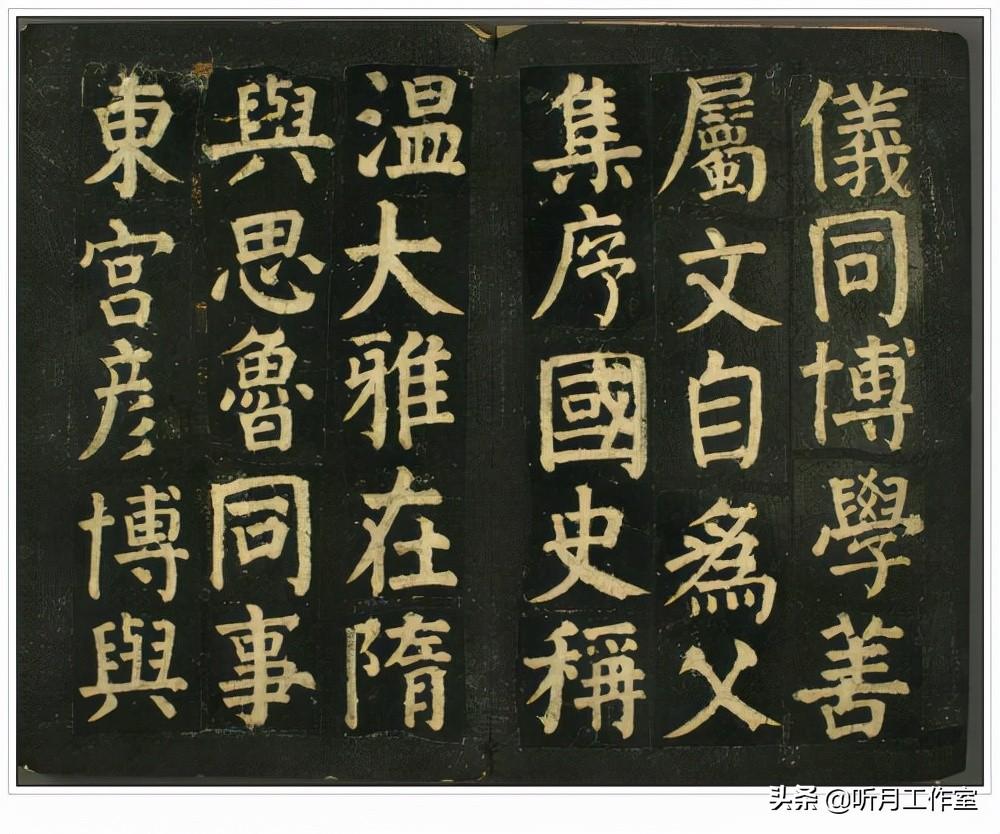 儀同博學善
屬文自爲父
集序國史稱
温大雅在隋
與思魯同事
東宮彦博與
头条 @听月工作室